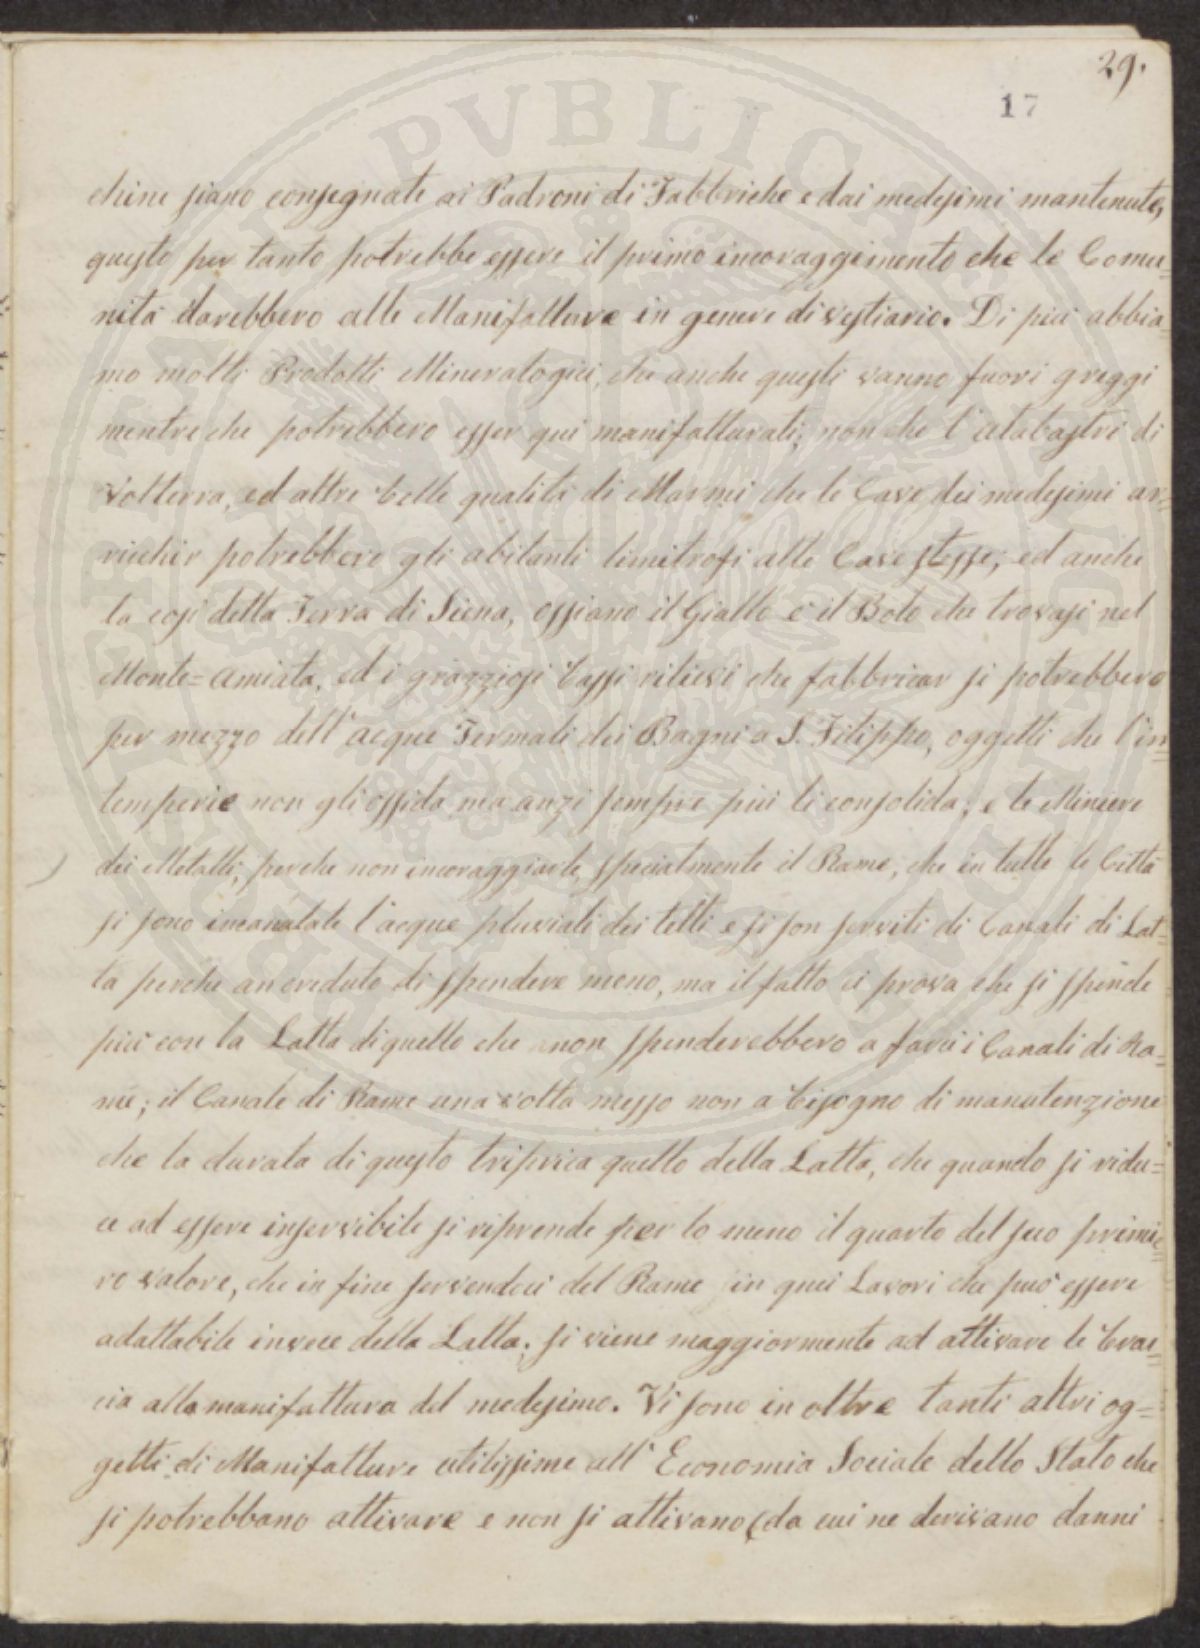 29.
17
chine siano consegnate ai Padroni di Fabbriche e dai medesimi mantenute,
questo per tanto potrebbe essere il primo incoraggimento che le Comu-
nità darebbero alle Manifatture in genere di vestiario. Di più abbia-
mo molti Prodotti Mineralogici, che anche questi vanno fuori greggi
mentre che potrebbero esser qui manifatturati; non che l'alabastri di
Volterra, ed altre belle qualità di Marmi che le Cave dei medesimi ar-
ricchir potrebbero gli abitanti limitrofi alle Cave stesse; ed anche
la così detta Terra di Siena, ossiano il Giallo e il Bolo che trovasi nel
Monte=amiata, ed i grazziosi bassi rilievi che fabbricar si potrebbero
per mezzo dell'acque Termali dei Bagni a S. Filippo, oggetti che l'in=
temperie non gli ossida ma anzi sempre più li consolida; e le Miniere
dei Metalli, perche non incoraggiarle, specialmente il Rame, che in tutte le Città
si sono incanalate l'acque pluviali dei tetti e si son serviti di Canali di Lat=
ta perche an creduto di spendere meno, ma il fatto ci prova che si spende
più con la Latta di quello che non spenderebbero a farci i Canali di Ra=
me; il Canale di Rame una volta messo non a bisogno di manutenzione
che la durata di questo triprica quello della Latta, che quando si ridu=
ce ad essere inservibile si riprende per lo meno il quarto del suo primie=
ro valore, che in fine servendoci del Rame in quei Lavori che può essere
adattabile invece della Latta; si viene maggiormente ad attivare le brac=
cia alla manifattura del medesimo. Vi sono in oltre tanti altri og=
getti di Manifatture utilissime all'Economia Sociale dello Stato che
si potrebbano attivare e non si attivano (da cui ne derivano danni
PUBLICAE